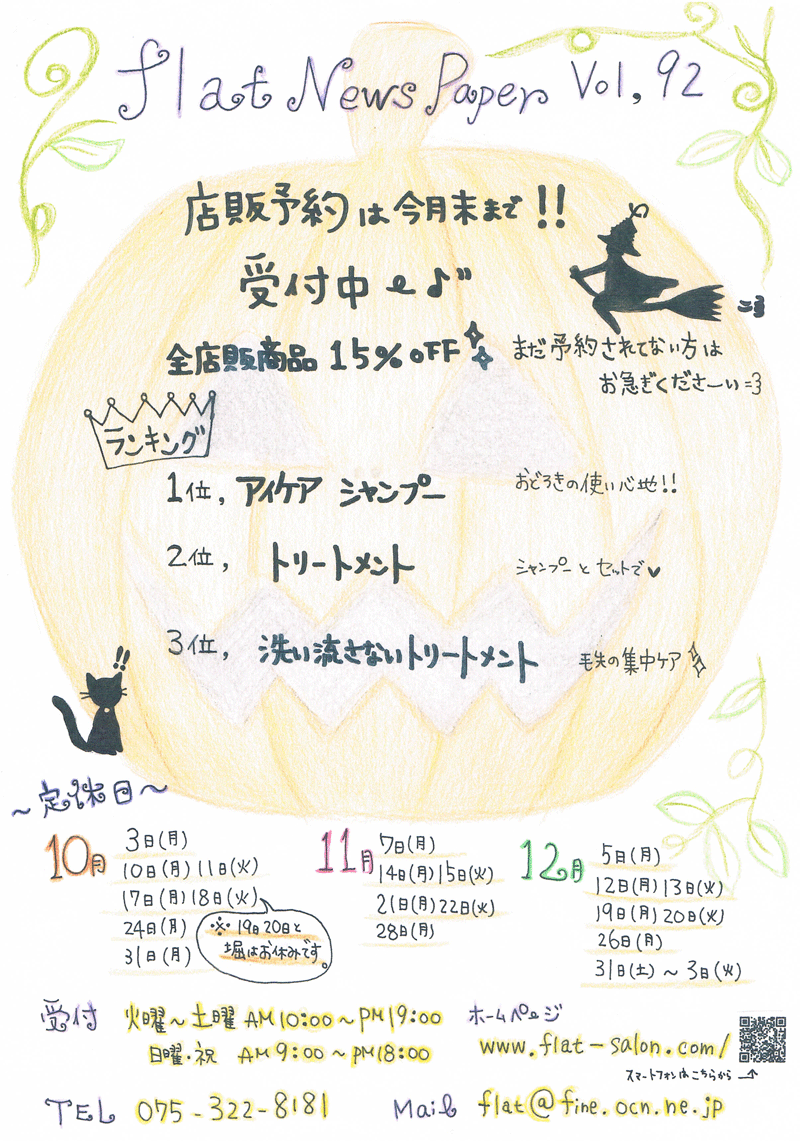 flat News Paper Vol, 92
店販予約は今月末まで!!
受付中〜♪"
全店販商品 15%OFF
まだ予約されてない方は
お急ぎくださーい=3
ランキング
1位, アイケア シャンプー
おどろきの使い心地!!
2位, トリートメント
シャンプーとセットで♥
3位, 洗い流さないトリートメント
毛先の集中ケア
!!
～定休日～
10月
3日(月)
10日(月) 11日(火)
17日(月) 18日(火)
24日(月)
31日(月)
※ 19日 20日と
堀はお休みです。
11月
7日(月)
14日(月) 15日(火)
21日(月) 22日(火)
28日(月)
12月
5日(月)
12日(月) 13日(火)
19日(月) 20日(火)
26日(月)
31日(土) ～ 3日(火)
受付 火曜～土曜 AM10:00～PM19:00
日曜・祝 AM9:00～PM18:00
ホームページ
www.flat-salon.com/
スマートフォンはこちらから→
TEL 075-322-8181
Mail flat@fine.ocn.ne.jp